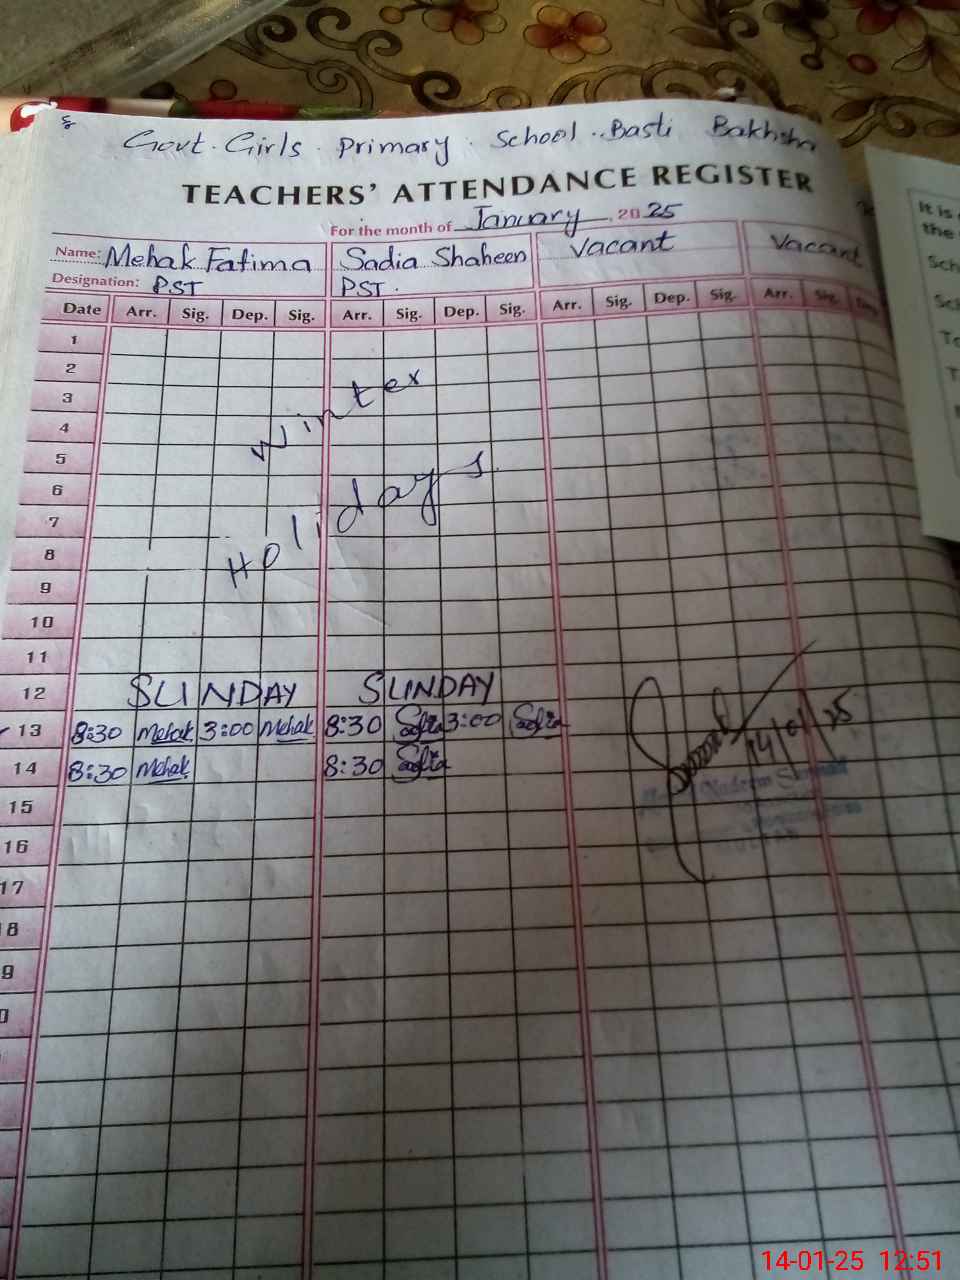 Govt. Girls. Primary. School. Basti Bakhsha
TEACHERS' ATTENDANCE REGISTER
For the month of January, 2025
Name: Mehak Fatima Sadia Shaheen Vacant Vacant
Designation: PST PST.
Date Arr. Sig. Dep. Sig. Arr. Sig. Dep. Sig. Arr. Sig. Dep. Sig. Arr. Sig. Dep.
1
2
3
Winter
4
5
6
Holidays
7
8
9
10
11
12 SUNDAY SUNDAY
13 8:30 Mehak 3:00 Mehak 8:30 Sadia 3:00 Sadia
14/01/25
14 8:30 Mehak 8:30 Sadia
15
16
17
8
9
0
It is
the
Sch
Sch
To
T
14-01-25 12:51